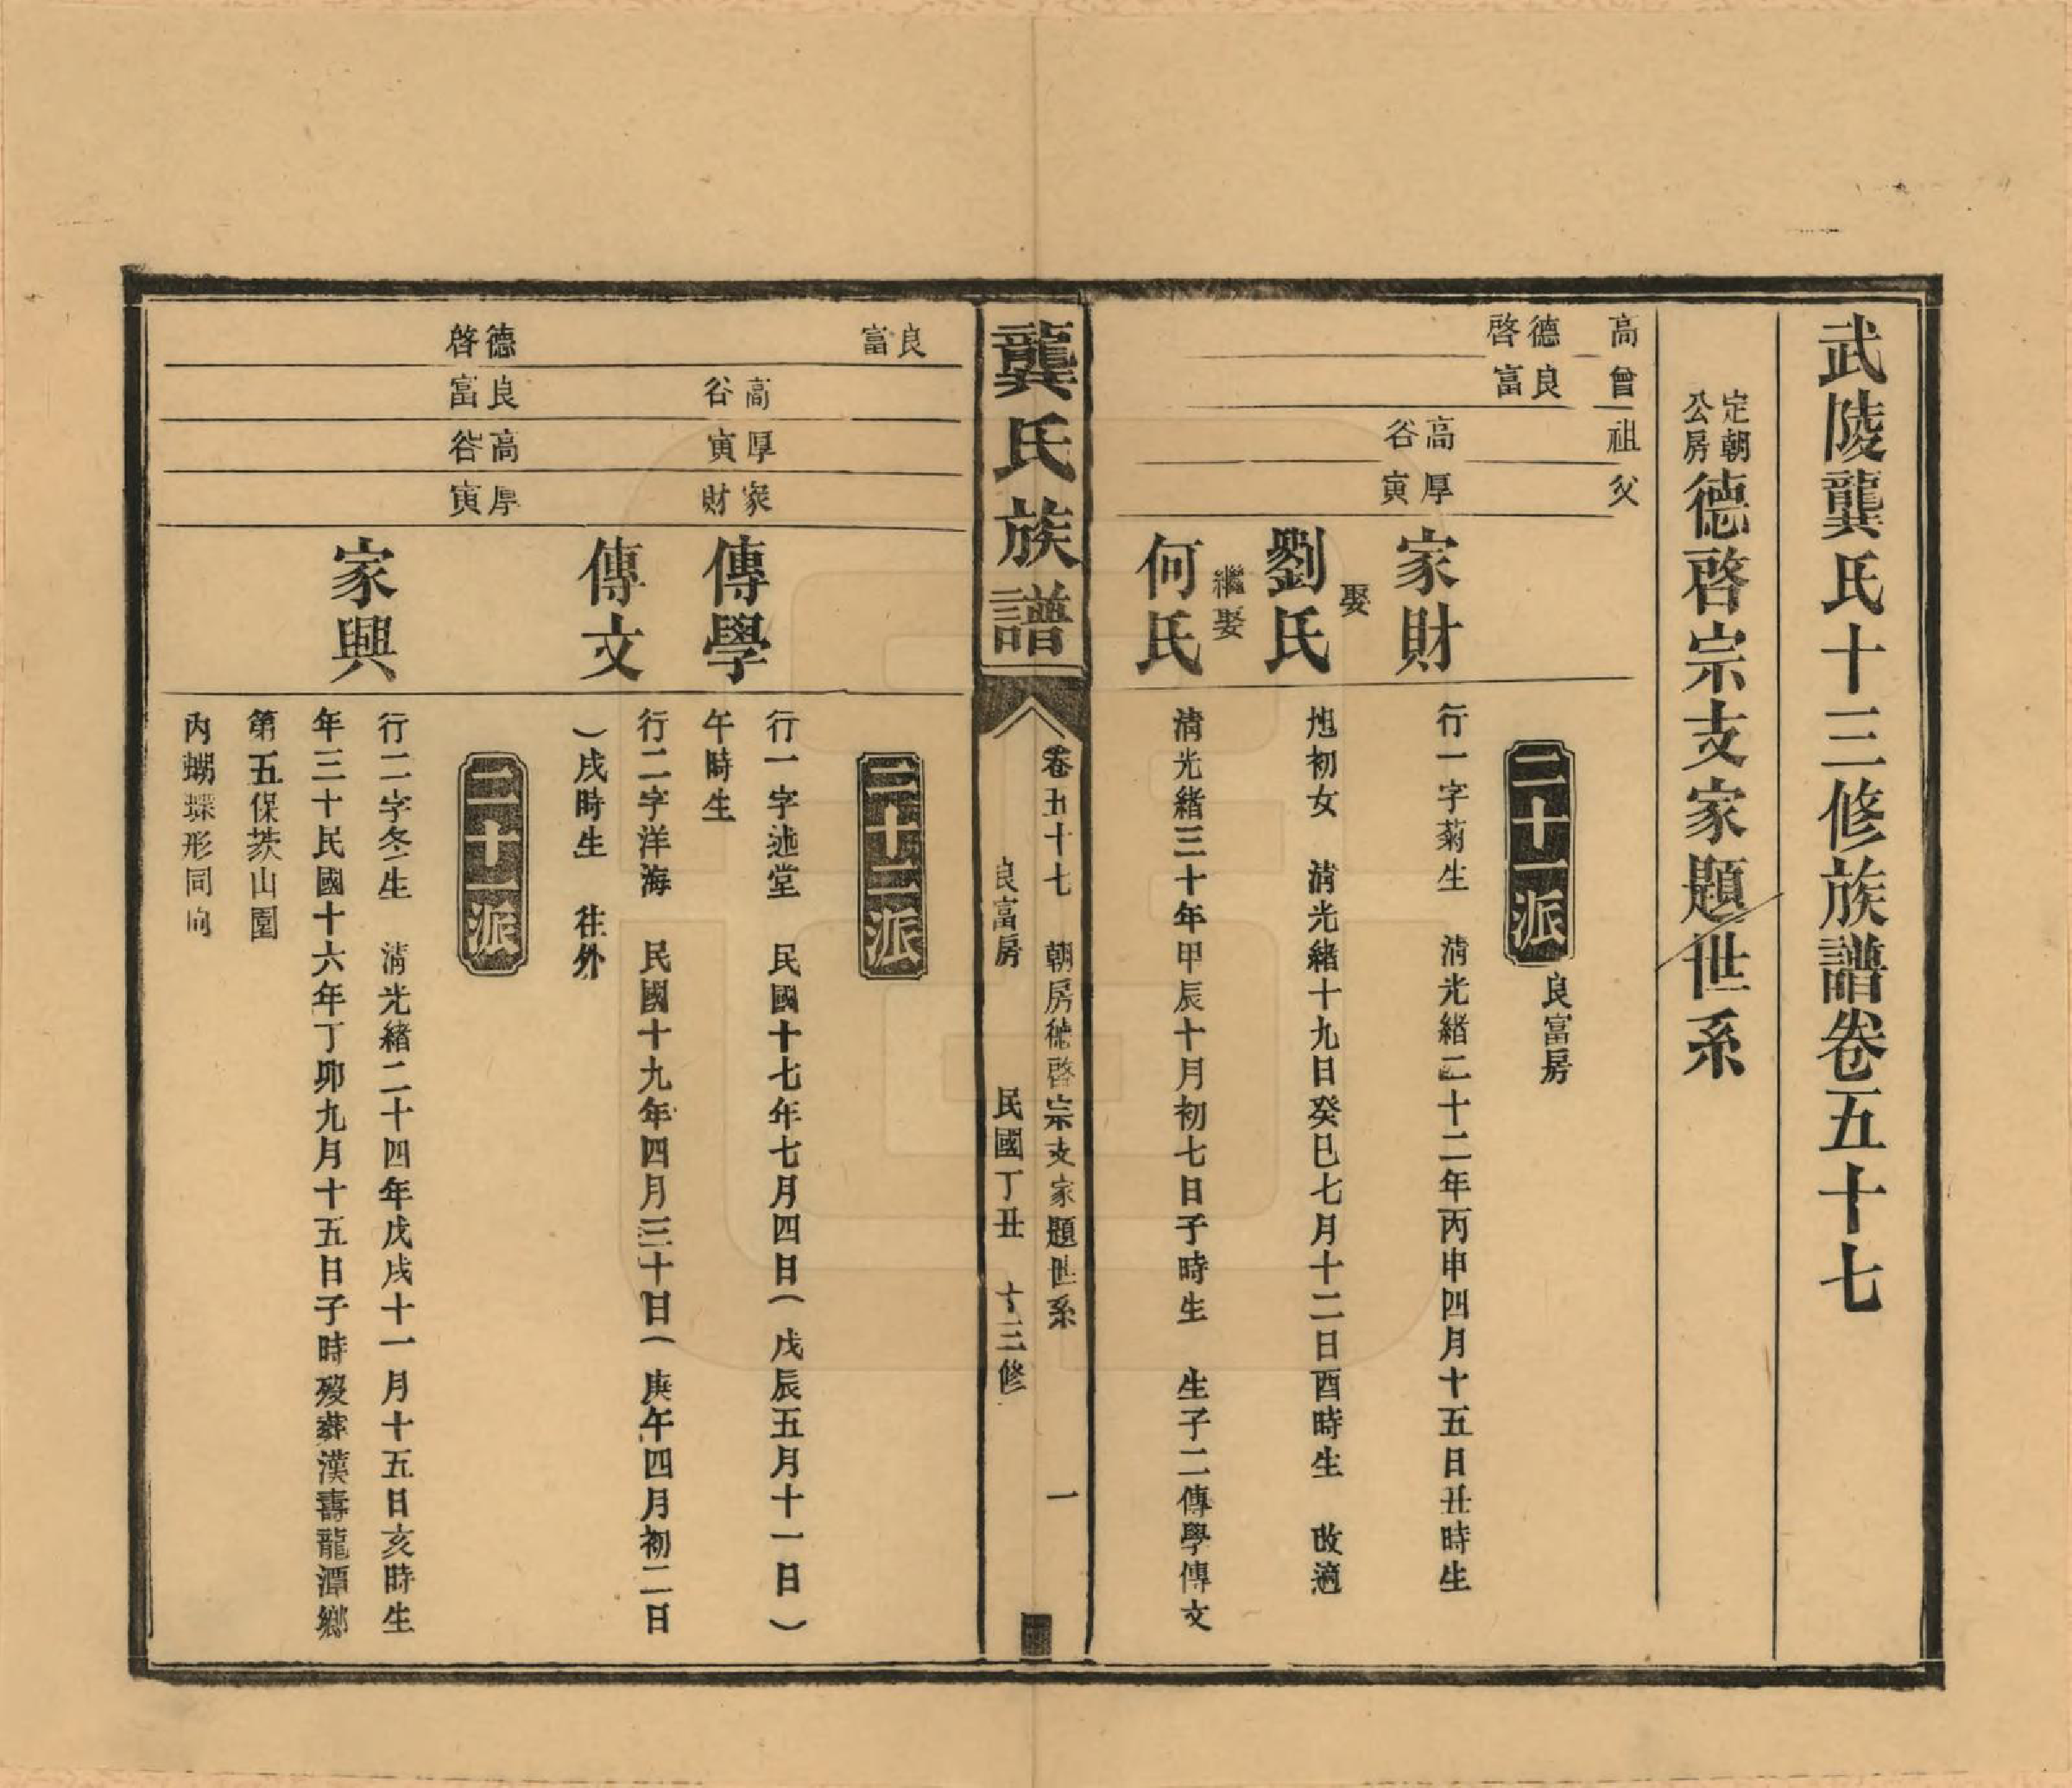 武陵龔氏十三修族譜卷五十七
定朝公房德啓宗支家題世系
高 曾 祖 父
德啓
良富
高谷
厚寅
二十一派 良富房
家財
行一字菊生 清光緒二十二年丙申四月十五日丑時生
娶
劉氏
旭初女 清光緒十九日癸巳七月十二日酉時生 改適
繼娶
何氏
清光緒三十年甲辰十月初七日子時生 生子二傳學傳文
龔氏族譜
卷五十七 朝房德啓宗支家題世系 一
良富房 民國丁丑 十三修
良富
高谷
厚寅
家財
二十二派
傳學
行一字述堂 民國十七年七月四日(戊辰五月十一日)
午時生
傳文
行二字洋海 民國十九年四月三十日(庚午四月初二日
)戌時生 往外
德啓
良富
高谷
厚寅
二十一派
家興
行二字冬生 清光緒二十四年戊戌十一月十五日亥時生
年三十民國十六年丁卯九月十五日子時歿葬漢壽龍潭鄉
第五保茨山園
內蝴蝶形同向